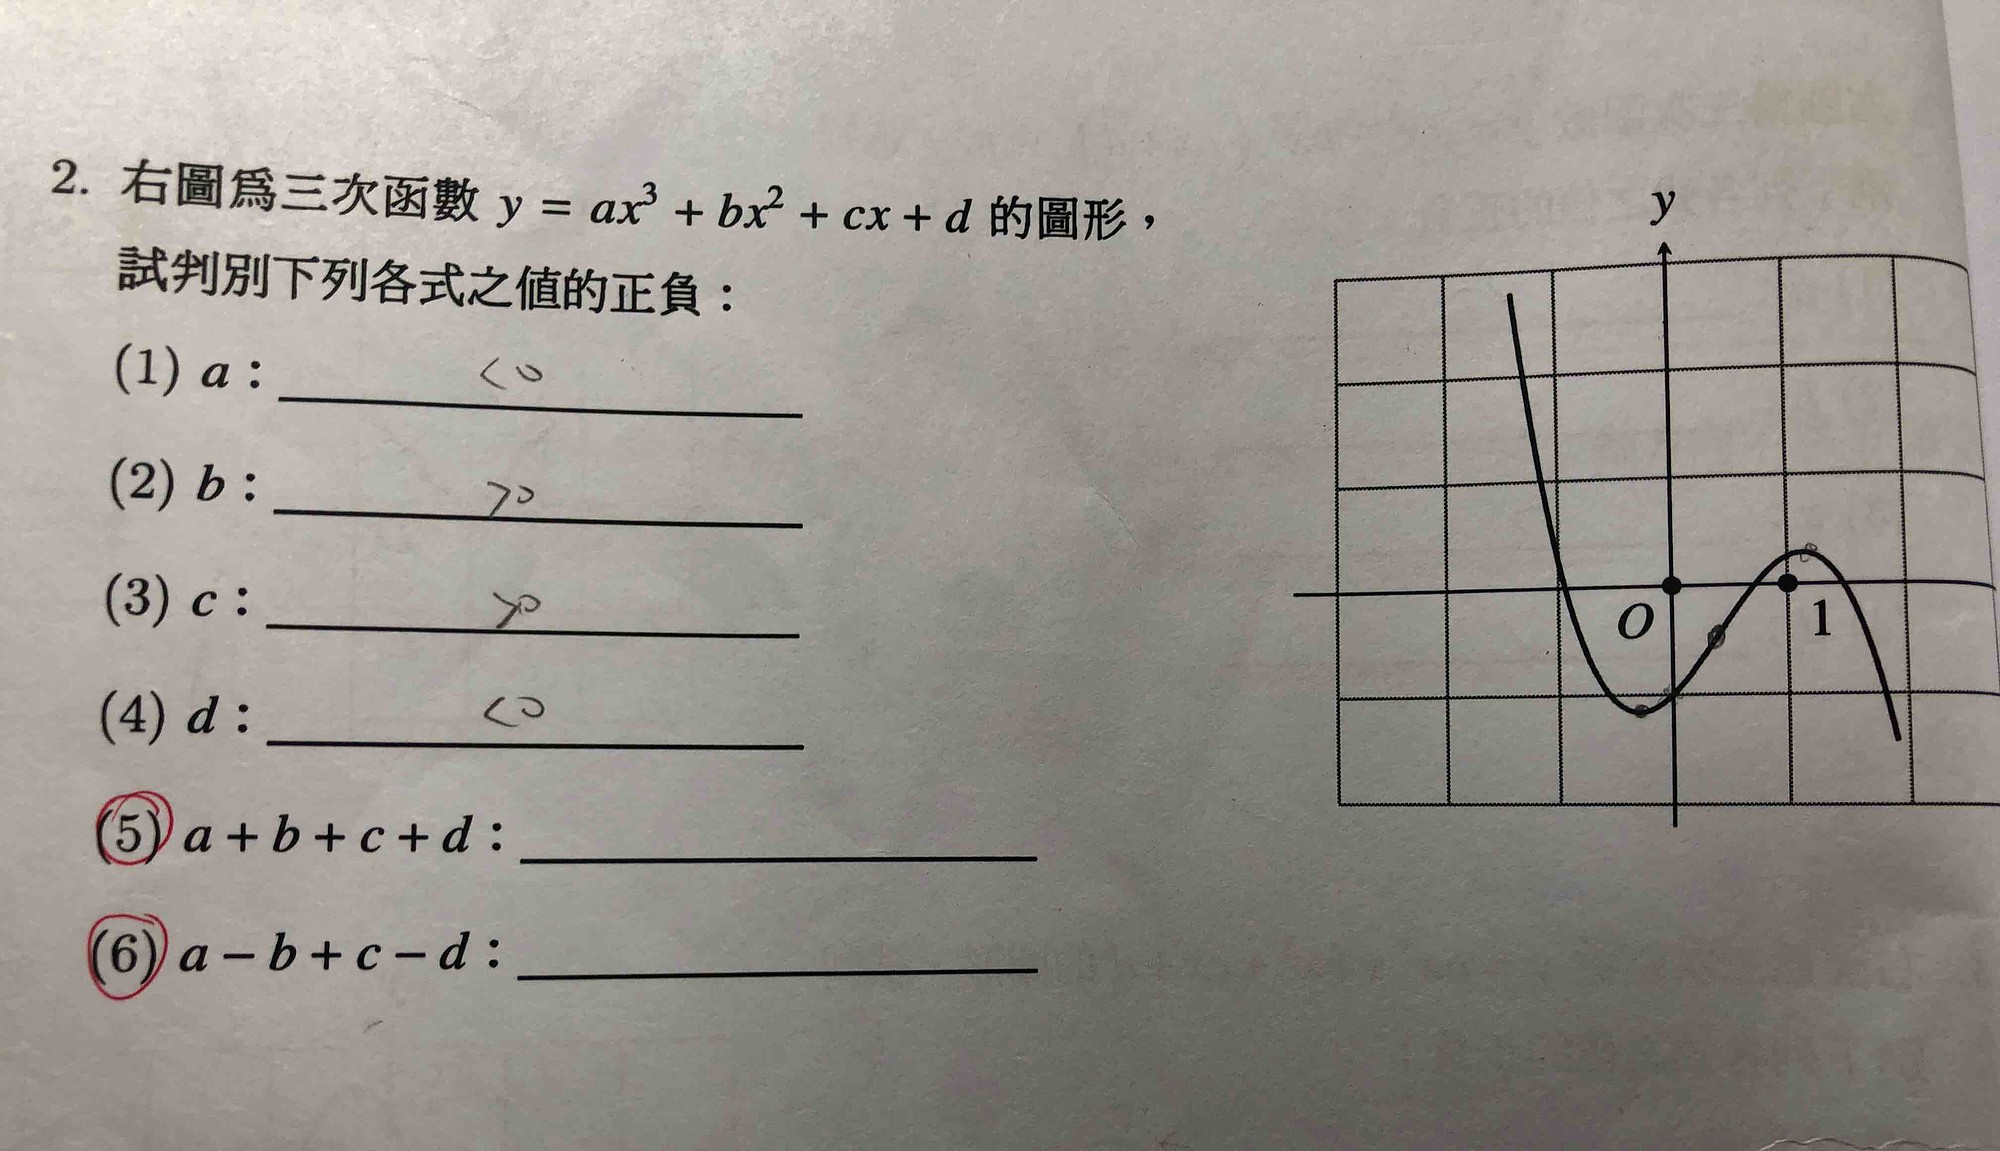 2. 右圖為三次函數 y = ax³ + bx² + cx + d 的圖形，
試判別下列各式之值的正負：
(1) a： <0
(2) b： >0
(3) c： >0
(4) d： <0
(5) a + b + c + d：
(6) a − b + c − d：
y
O
1